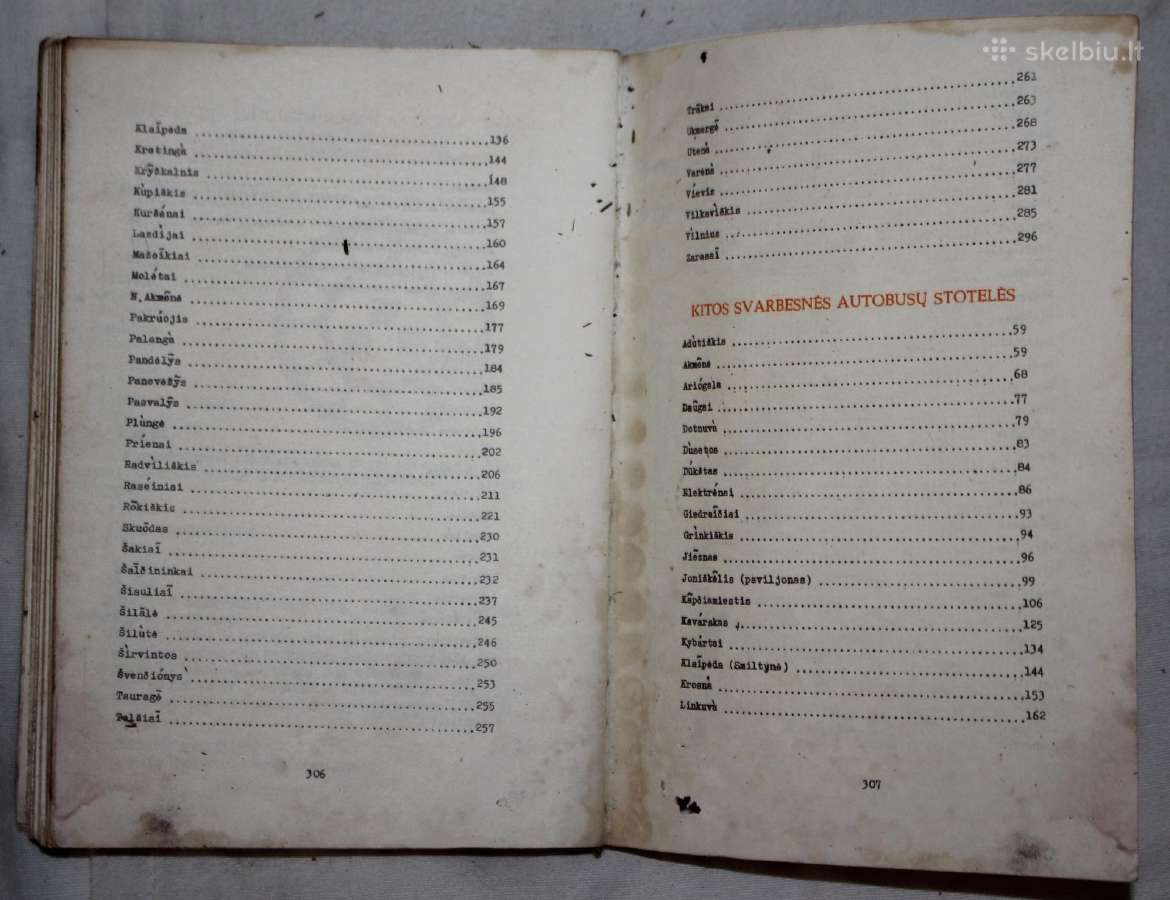 Klaĩpėda 136
Kretingà 144
Krỹžkalnis 148
Kùpiškis 155
Kuršėnai 157
Lazdijai 160
Mažeĩkiai 164
Molėtai 167
N. Akmẽnė 169
Pakrúojis 177
Palangà 179
Pandėlỹs 184
Panevėžỹs 185
Pasvalỹs 192
Plùngė 196
Príenai 202
Radvìliškis 206
Raséiniai 211
Rõkiškis 221
Skuõdas 230
Šakiaĩ 231
Šalčininkai 232
Šiauliaĩ 237
Šilãlė 245
Šilùtė 246
Šìrvintos 250
Švenčiónys 253
Tauragė̃ 255
Telšiaĩ 257
306
skelbiu.lt
Trãkai 261
Ukmergė̃ 263
Utenà 268
Varėnà 273
Víevis 277
Vilkavìškis 281
Vìlnius 285
Zarasaĩ 296
KITOS SVARBESNĖS AUTOBUSŲ STOTELĖS
Adùtiškis 59
Akmẽnė 59
Ariógala 68
Daũgai 77
Dotnuvà 79
Dùsetos 83
Dū́kštas 84
Elektrė́nai 86
Giedraĩčiai 93
Grìnkiškis 94
Jiẽznas 96
Joniškėlis (paviljonas) 99
Kãpčiamiestis 106
Kavárskas 125
Kybártai 134
Klaĩpėda (Smiltynė) 144
Krosnà 153
Linkuvà 162
307